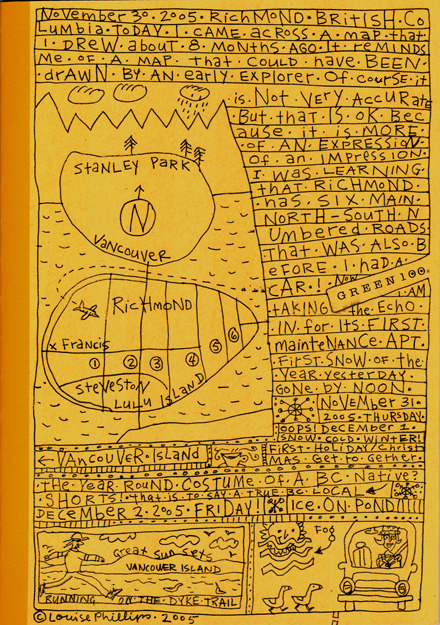 November 30 · 2005 · RicHMoND · BRitisH · Co
Lumbia · ToDAY · I · CAME · ACROSS · A · MAP · that ·
I · DREW · about · 8 · MONTHS · AGO · It · REMiNDS
Me · OF · A · MAP · tHAT · COULD · have · BEEN ·
drawN · By · AN · early · EXPLORER · Of · course · it
is · Not · VERY · AccuRAte
But · that · IS · OK · Bec
ause · it · is · MORE ·
· OF · AN · EXPRESSioN
of · an · IMPRESSION ·
I · WAS · LEARNING ·
tHAt · RICHMOND ·
has · SIX · MAIN ·
NORTH – SOUtH · N
Umbered · ROADS ·
tHAt · WAS · ALSO · B
eFORE · I · haD · A ·
cAR · ! · Now
I · AM
GREEN 100.
tAKING · the · EcHo ·
· IN · for · Its · FIRST ·
mainteNANce · APT ·
· FIRST · SNOW · OF · the ·
YeaR · yesterDAY ·
GoNe · by · NOON ·
NOVEMBER · 31 ·
2005 · THURSDAY ·
OOPS! DECEMBER 1 ·
SNOW · COLD · WINTER!
FIRST · HoLiDAY/CHRISt
MAS · Get · to · Gether ·
STANLEY PARK
N
VANcouVER
RicHMoND
x Francis
1 2 3 4 5 6
SteVEStoN
LULU ISLAND
← VANcouVER · ISlAND
the · YeaR · RouND · COSTUME · OF · A · BC · NAtive?
SHORTS! · that · is · to · SAY · A · tRUE · BC · LOCAL
DECEMBER · 2 · 2005 · FRIDAY! Ice · ON · POND!!!!
Great SuN Sets
VANCOUVER ISLAND
RUNNING · ON · tHE · DYKE · TRAIL
FoG
© Louise Phillips · 2005